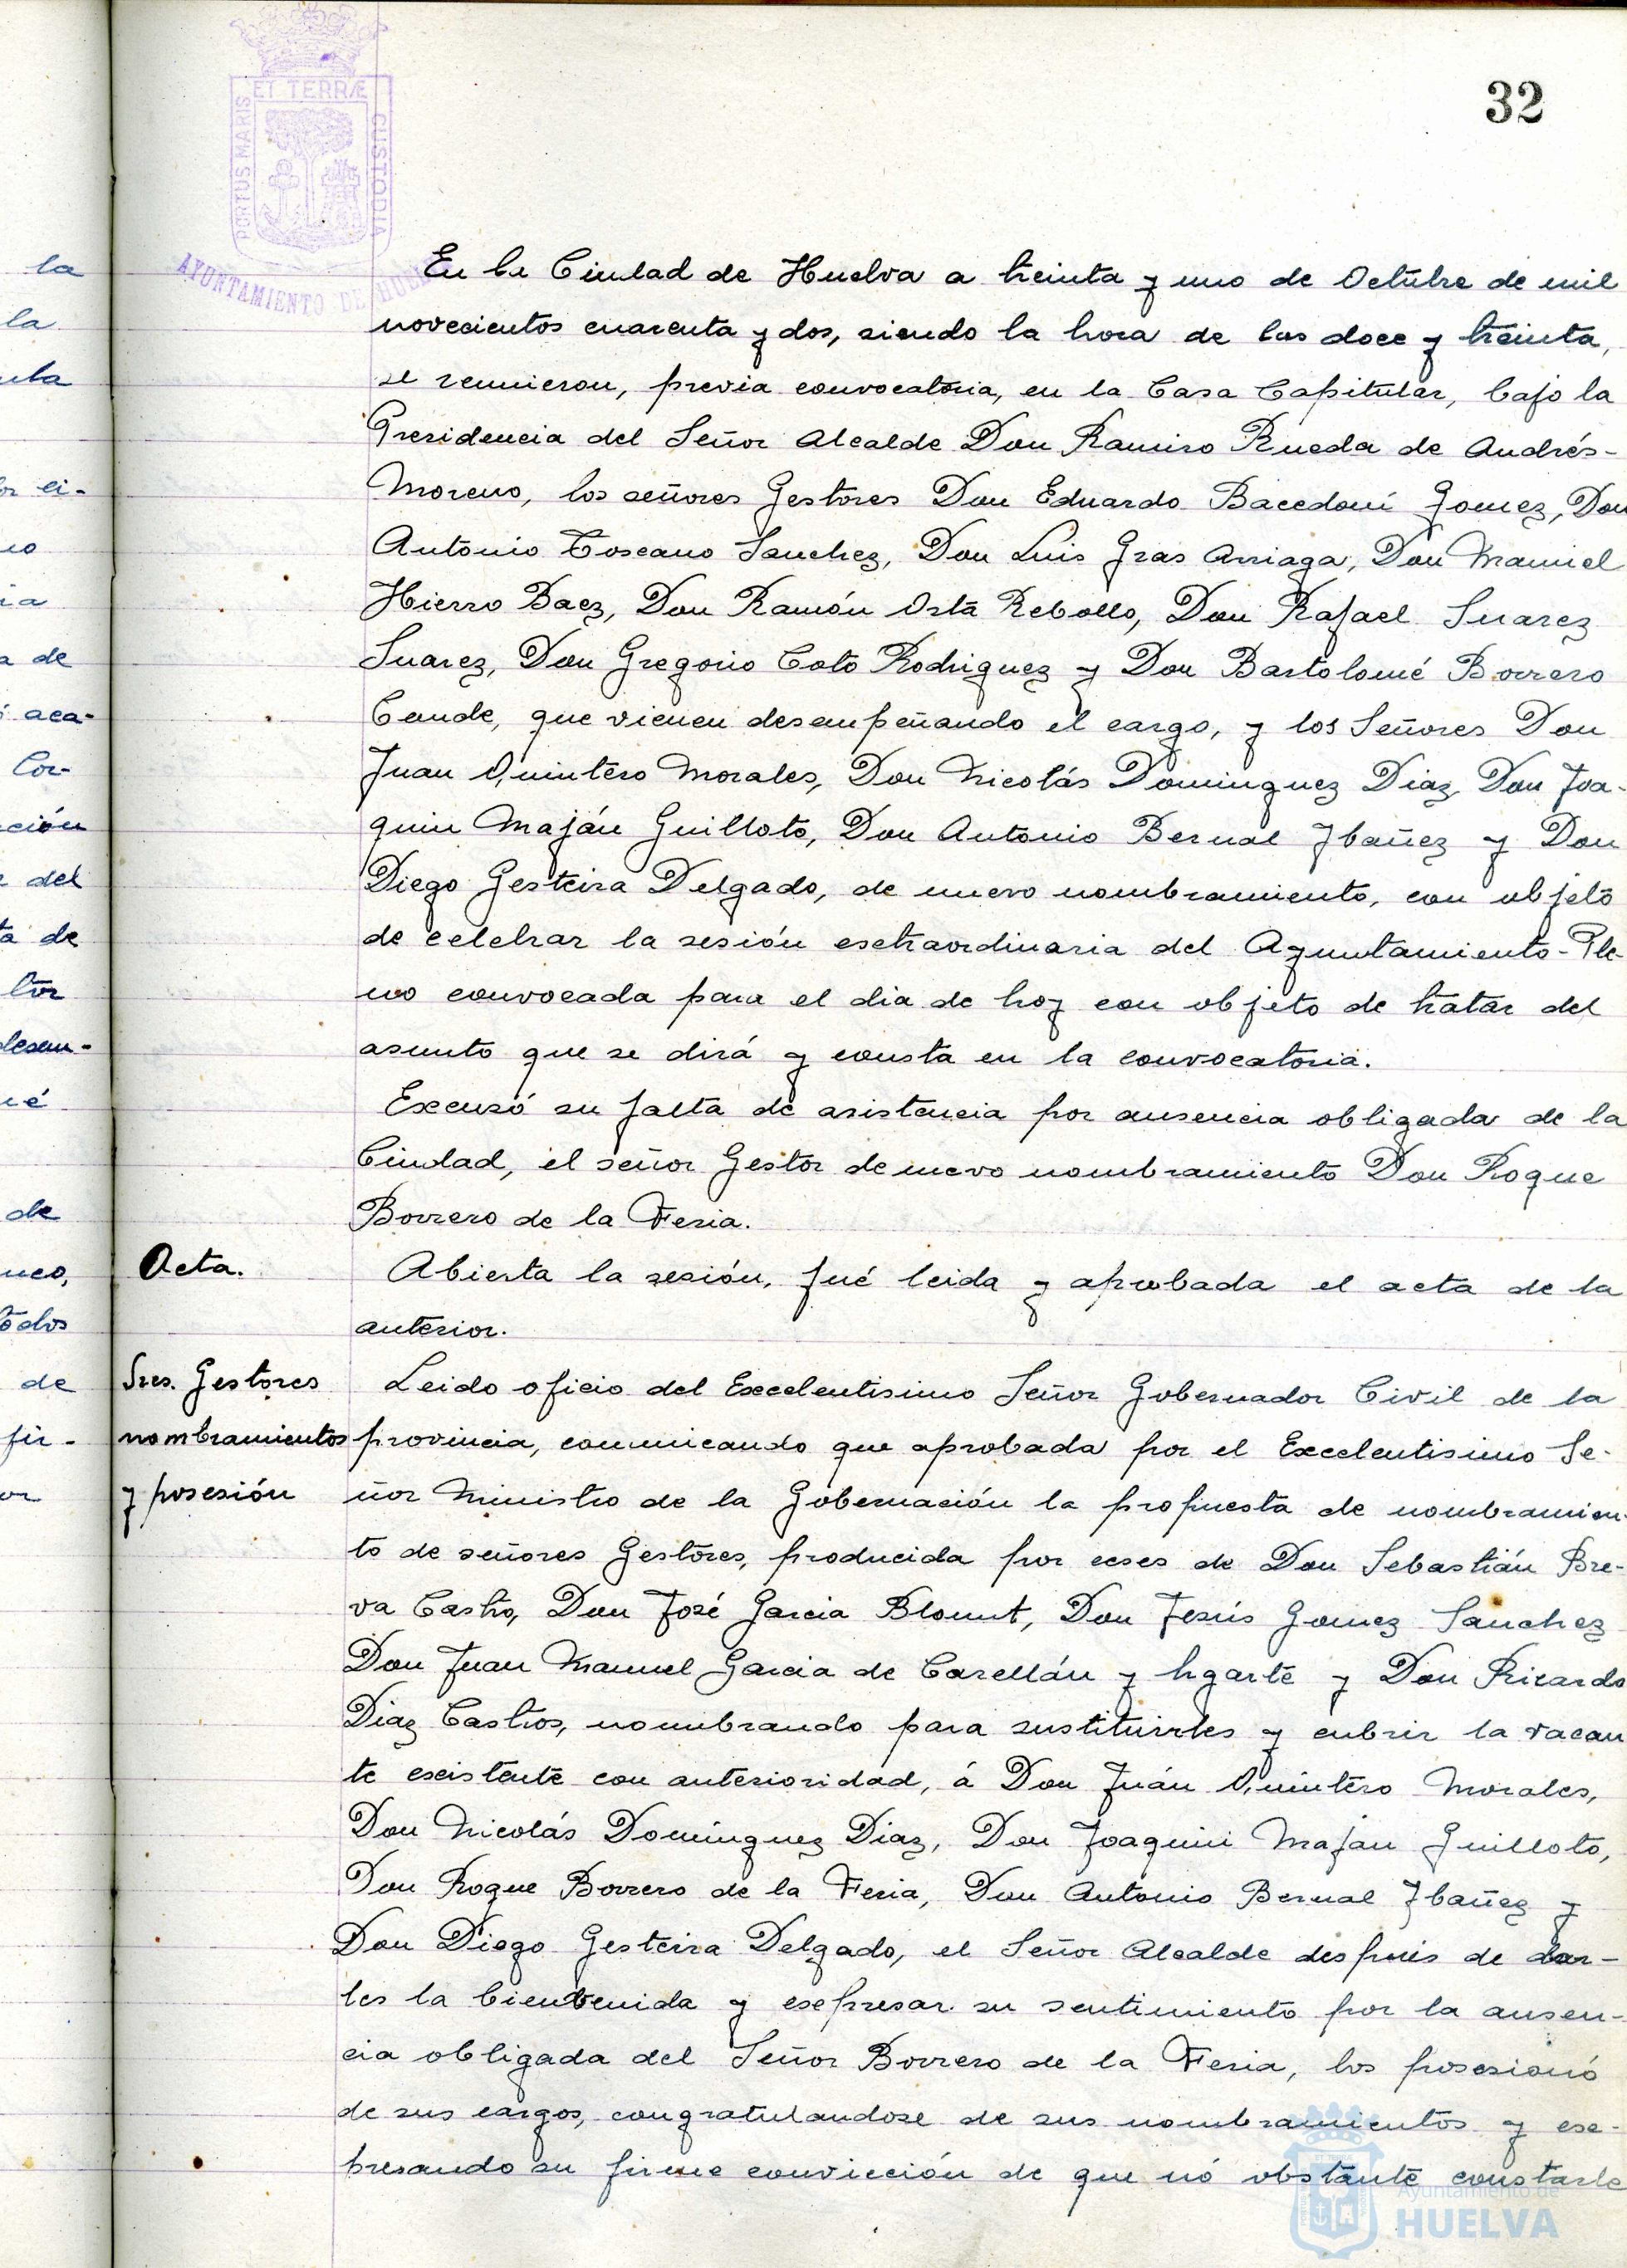 32
ET TERRÆ
PORTUS MARIS
CUSTODIA
AYUNTAMIENTO DE HUELVA
En la Ciudad de Huelva a treinta y uno de Octubre de mil
novecientos cuarenta y dos, siendo la hora de las doce y treinta,
se reunieron, previa convocatoria, en la Casa Capitular, bajo la
Presidencia del Señor Alcalde Don Ramiro Rueda de Andrés-
Moreno, los señores Gestores Don Eduardo Bacedoni Gomez, Don
Antonio Toscano Sanchez, Don Luis Gras Arriaga, Don Manuel
Hierro Baez, Don Ramón Orta Rebollo, Don Rafael Suarez
Suarez, Don Gregorio Coto Rodriguez y Don Bartolomé Borrero
Conde, que vienen desempeñando el cargo, y los Señores Don
Juan Quintero Morales, Don Nicolás Dominguez Diaz, Don Joa-
quin Maján Guilloto, Don Antonio Bernal Ybañez y Don
Diego Gesteira Delgado, de nuevo nombramiento, con objeto
de celebrar la sesión esctraordinaria del Ayuntamiento-Ple-
no convocada para el dia de hoy con objeto de tratar del
asunto que se dirá y consta en la convocatoria.
Excusó su falta de asistencia por ausencia obligada de la
Ciudad, el señor Gestor de nuevo nombramiento Don Roque
Borrero de la Feria.
Acta.
Abierta la sesión, fué leida y aprobada el acta de la
anterior.
Sres. Gestores
nombramientos
y posesión
Leido oficio del Excelentisimo Señor Gobernador Civil de la
provincia, comunicando que aprobada por el Excelentisimo Se-
ñor Ministro de la Gobernación la propuesta de nombramien-
to de señores Gestores, producida por ceses de Don Sebastián Bre-
va Castro, Don José Garcia Blount, Don Jesús Gomez Sanchez
Don Juan Manuel Garcia de Carellán y Ugarte y Don Ricardo
Diaz Castros, nombrando para sustituirles y cubrir la vacan
te escistente con anterioridad, á Don Juán Quintero Morales,
Don Nicolás Dominguez Diaz, Don Joaquin Majan Guilloto,
Don Roque Borrero de la Feria, Don Antonio Bernal Ybañez y
Don Diego Gesteira Delgado, el Señor Alcalde después de dar-
les la bienbenida y escpresar su sentimiento por la ausen-
cia obligada del Señor Borrero de la Feria, los posesionó
de sus cargos, congratulandose de sus nombramientos y esc-
presando su firme convicción de que nó obstante constarle
Ayuntamiento de
HUELVA
la
la
de
aca-
Cor-
ción
del
de
tor
desem-
de
de